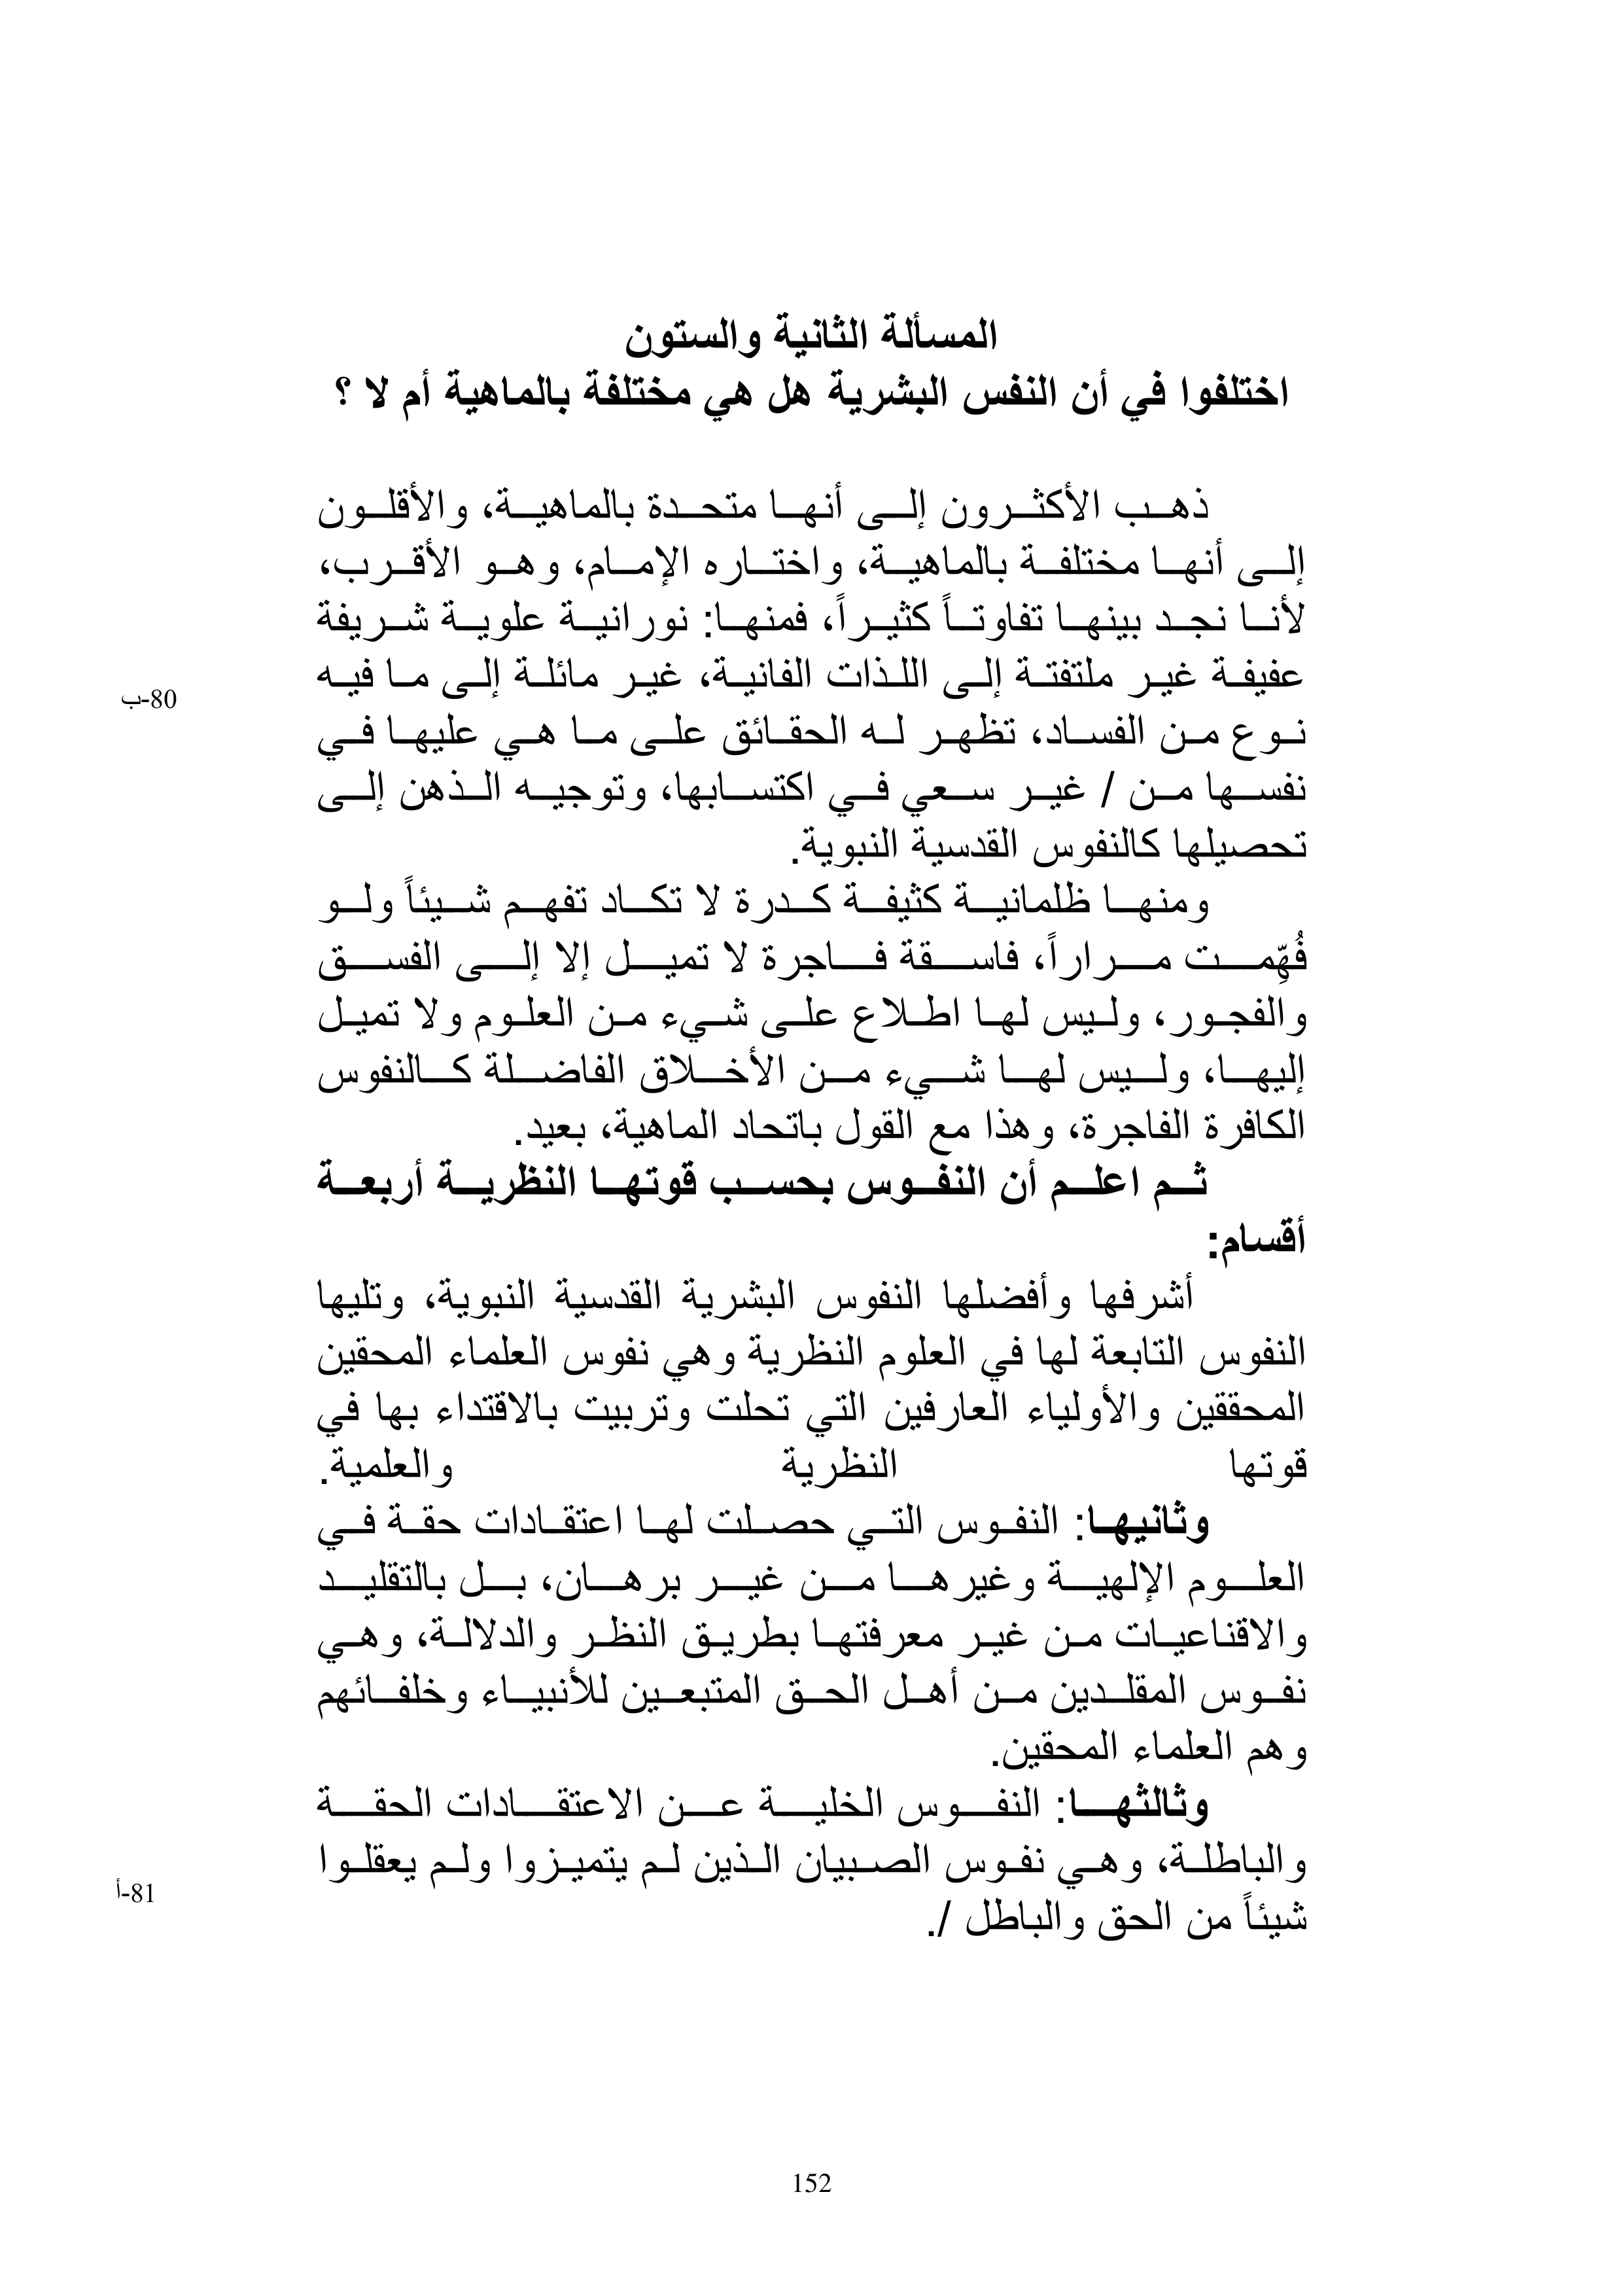 المسألة الثانية والستون
اختلفوا في أن النفس البشرية هل هي مختلفة بالماهية أم لا ؟
ذهب الأكثرون إلى أنها متحدة بالماهية، والأقلون
إلى أنها مختلفة بالماهية، واختاره الإمام، وهو الأقرب،
لأنا نجد بينها تفاوتاً كثيراً، فمنها: نورانية علوية شريفة
عفيفة غير ملتفتة إلى اللذات الفانية، غير مائلة إلى ما فيه
80-ب
نوع من الفساد، تظهر له الحقائق على ما هي عليها في
نفسها من / غير سعي في اكتسابها، وتوجيه الذهن إلى
تحصيلها كالنفوس القدسية النبوية.
ومنها ظلمانية كثيفة كدرة لا تكاد تفهم شيئاً ولو
فُهِّمت مراراً، فاسقة فاجرة لا تميل إلا إلى الفسق
والفجور، وليس لها اطلاع على شيء من العلوم ولا تميل
إليها، وليس لها شيء من الأخلاق الفاضلة كالنفوس
الكافرة الفاجرة، وهذا مع القول باتحاد الماهية، بعيد.
ثم اعلم أن النفوس بحسب قوتها النظرية أربعة
أقسام:
أشرفها وأفضلها النفوس البشرية القدسية النبوية، وتليها
النفوس التابعة لها في العلوم النظرية وهي نفوس العلماء المحقين
المحققين والأولياء العارفين التي تحلت وتربيت بالاقتداء بها في
قوتها النظرية والعلمية.
وثانيها: النفوس التي حصلت لها اعتقادات حقة في
العلوم الإلهية وغيرها من غير برهان، بل بالتقليد
والاقناعيات من غير معرفتها بطريق النظر والدلالة، وهي
نفوس المقلدين من أهل الحق المتبعين للأنبياء وخلفائهم
وهم العلماء المحقين.
وثالثها: النفوس الخلية عن الاعتقادات الحقة
والباطلة، وهي نفوس الصبيان الذين لم يتميزوا ولم يعقلوا
81-أ
شيئاً من الحق والباطل /.
152